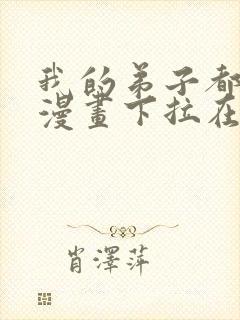 我的弟子都
漫畫下拉在
肖澤萍